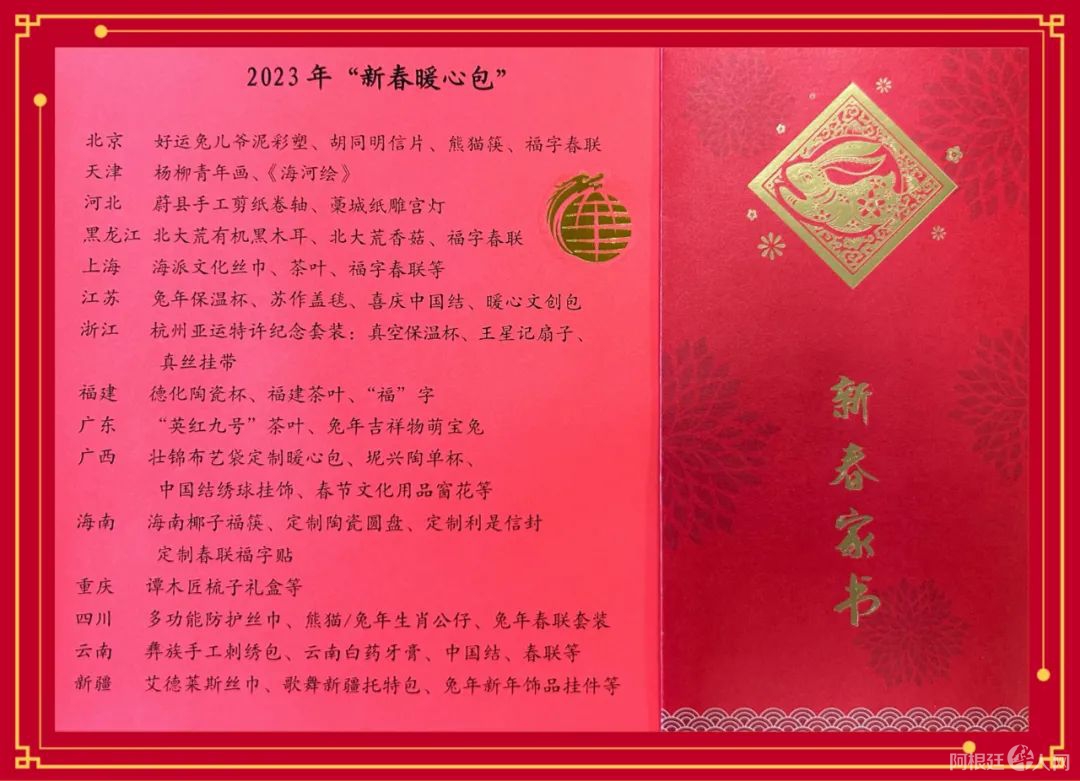 2023年“新春暖心包”
北京 好运兔儿爷泥彩塑、胡同明信片、熊猫筷、福字春联
天津 杨柳青年画、《海河绘》
河北 蔚县手工剪纸卷轴、藁城纸雕宫灯
黑龙江 北大荒有机黑木耳、北大荒香菇、福字春联
上海 海派文化丝巾、茶叶、福字春联等
江苏 兔年保温杯、苏作盖毯、喜庆中国结、暖心文创包
浙江 杭州亚运特许纪念套装：真空保温杯、王星记扇子、
真丝挂带
福建 德化陶瓷杯、福建茶叶、“福”字
广东 “英红九号”茶叶、兔年吉祥物萌宝兔
广西 壮锦布艺袋定制暖心包、坭兴陶单杯、
中国结绣球挂饰、春节文化用品窗花等
海南 海南椰子福筷、定制陶瓷圆盘、定制利是信封
定制春联福字贴
重庆 谭木匠梳子礼盒等
四川 多功能防护丝巾、熊猫/兔年生肖公仔、兔年春联套装
云南 彝族手工刺绣包、云南白药牙膏、中国结、春联等
新疆 艾德莱斯丝巾、歌舞新疆托特包、兔年新年饰品挂件等
新春家书
阿根廷华人网